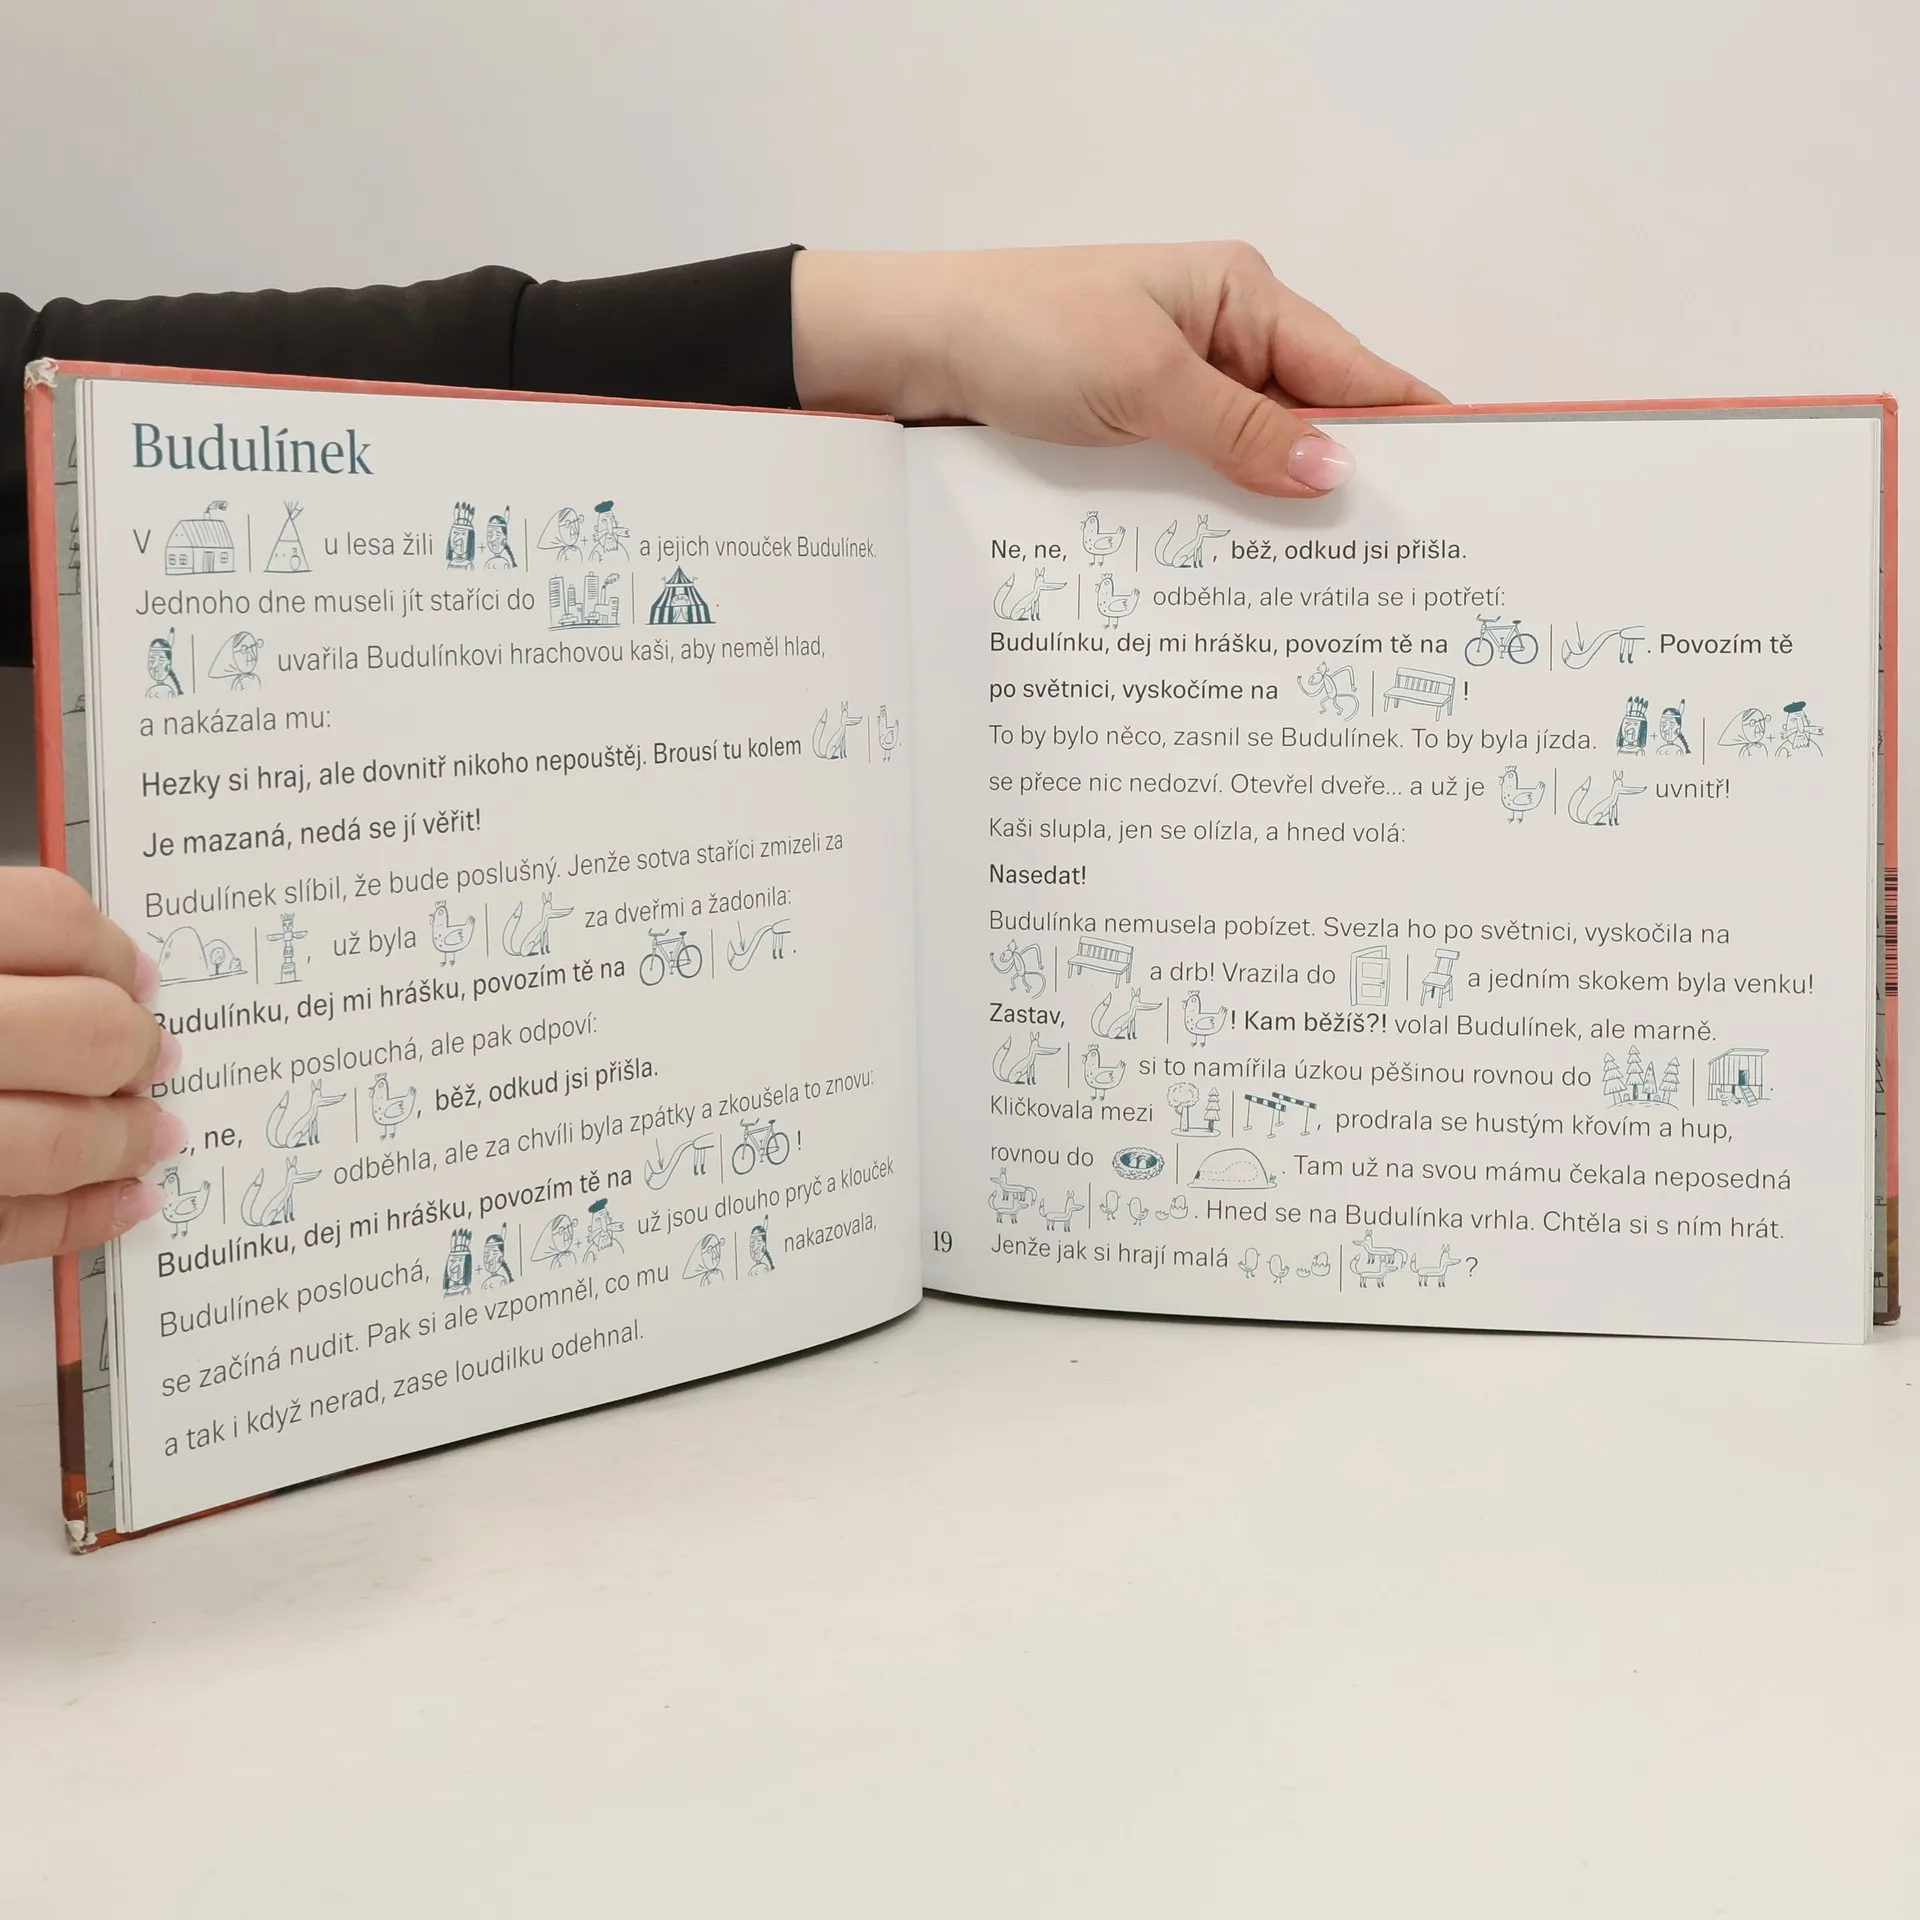 Budulínek
V u lesa žili a jejich vnouček Budulínek.
Jednoho dne museli jít staříci do .
uvařila Budulínkovi hrachovou kaši, aby neměl hlad,
a nakázala mu:
Hezky si hraj, ale dovnitř nikoho nepouštěj. Brousí tu kolem .
Je mazaná, nedá se jí věřit!
Budulínek slíbil, že bude poslušný. Jenže sotva staříci zmizeli za
, už byla za dveřmi a žadonila:
Budulínku, dej mi hrášku, povozím tě na .
Budulínek poslouchá, ale pak odpoví:
, ne, , běž, odkud jsi přišla.
odběhla, ale za chvíli byla zpátky a zkoušela to znovu:
Budulínku, dej mi hrášku, povozím tě na !
Budulínek poslouchá, už jsou dlouho pryč a klouček
se začíná nudit. Pak si ale vzpomněl, co mu nakazovala,
a tak i když nerad, zase loudilku odehnal.
Ne, ne, , běž, odkud jsi přišla.
odběhla, ale vrátila se i potřetí:
Budulínku, dej mi hrášku, povozím tě na . Povozím tě
po světnici, vyskočíme na !
To by bylo něco, zasnil se Budulínek. To by byla jízda.
se přece nic nedozví. Otevřel dveře... a už je uvnitř!
Kaši slupla, jen se olízla, a hned volá:
Nasedat!
Budulínka nemusela pobízet. Svezla ho po světnici, vyskočila na
a drb! Vrazila do a jedním skokem byla venku!
Zastav, ! Kam běžíš?! volal Budulínek, ale marně.
si to namířila úzkou pěšinou rovnou do .
Kličkovala mezi , prodrala se hustým křovím a hup,
rovnou do . Tam už na svou mámu čekala neposedná
. Hned se na Budulínka vrhla. Chtěla si s ním hrát.
Jenže jak si hrají malá ?
19